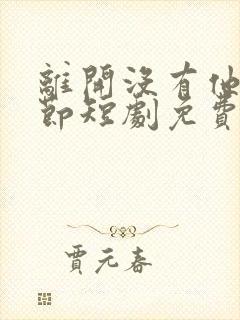 離開沒有他
節短劇免費
賈元春